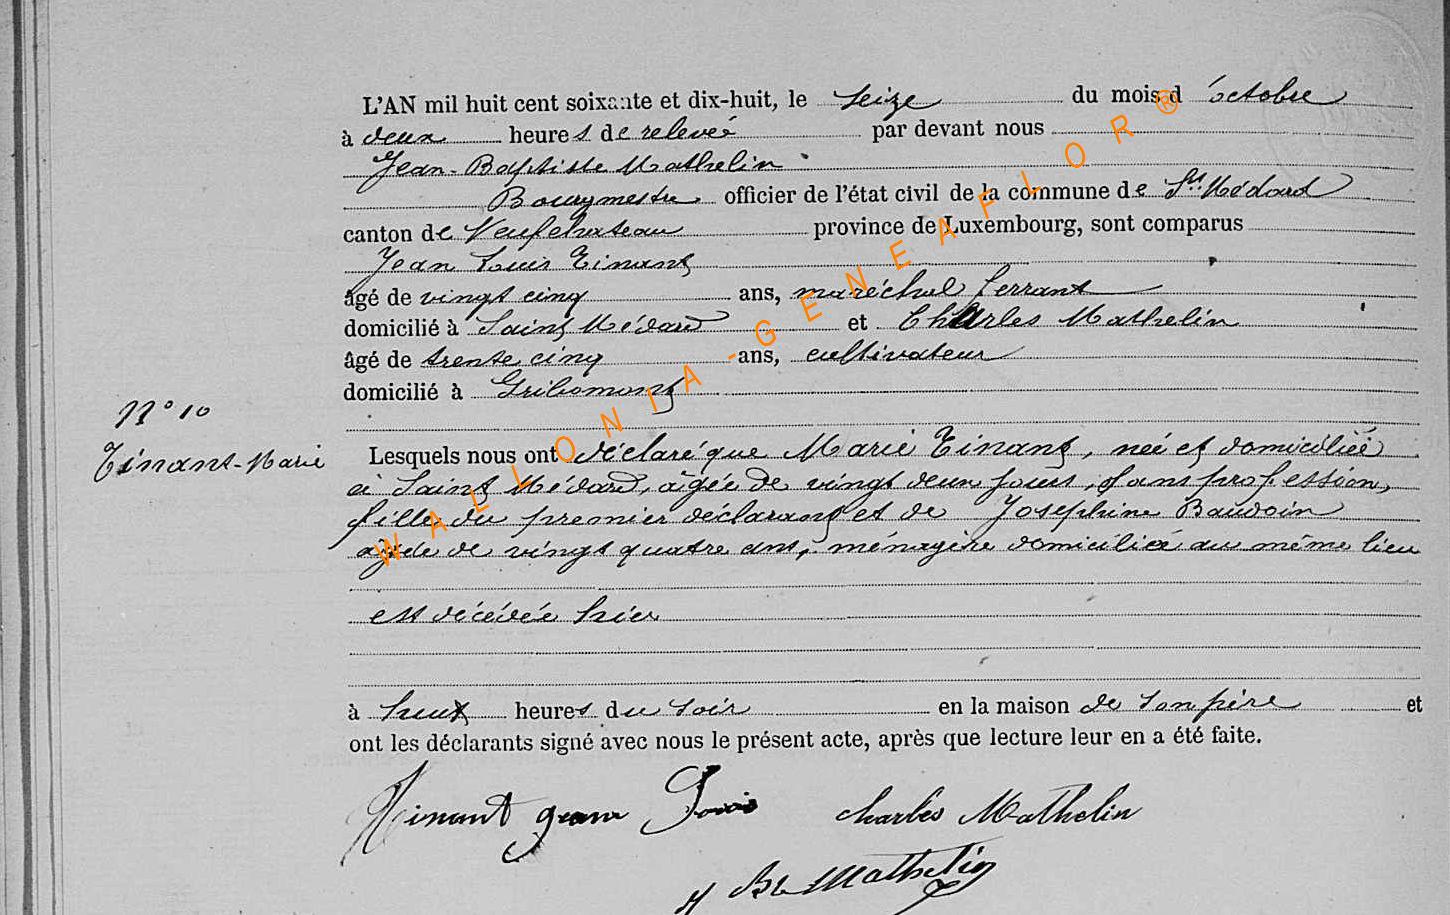 L'AN mil huit cent soixante et dix-huit, le seize du mois d'octobre
à deux heures de relevée par devant nous
Jean-Baptiste Mathelin
Bourgmestre officier de l'état civil de la commune de St Médard
canton de Neufchateau province de Luxembourg, sont comparus
Jean Louis Tinant
âgé de vingt cinq ans, maréchal ferrant
domicilié à Saint Médard et Charles Mathelin
âgé de trente cinq ans, cultivateur
domicilié à Gribomont
N° 10
Tinant-Marie
Lesquels nous ont déclaré que Marie Tinant, née et domiciliée
à Saint Médard, âgée de vingt deux jours, sans profession,
fille du premier déclarant et de Josephine Baudoin
agée de vingt quatre ans, ménagère domiciliée au même lieu
est décédée hier
à huit heures du soir en la maison de son père et
ont les déclarants signé avec nous le présent acte, après que lecture leur en a été faite.
Tinant jean Louis Charles Mathelin
Mathelin
WALLONIA-GENEAFLOR®